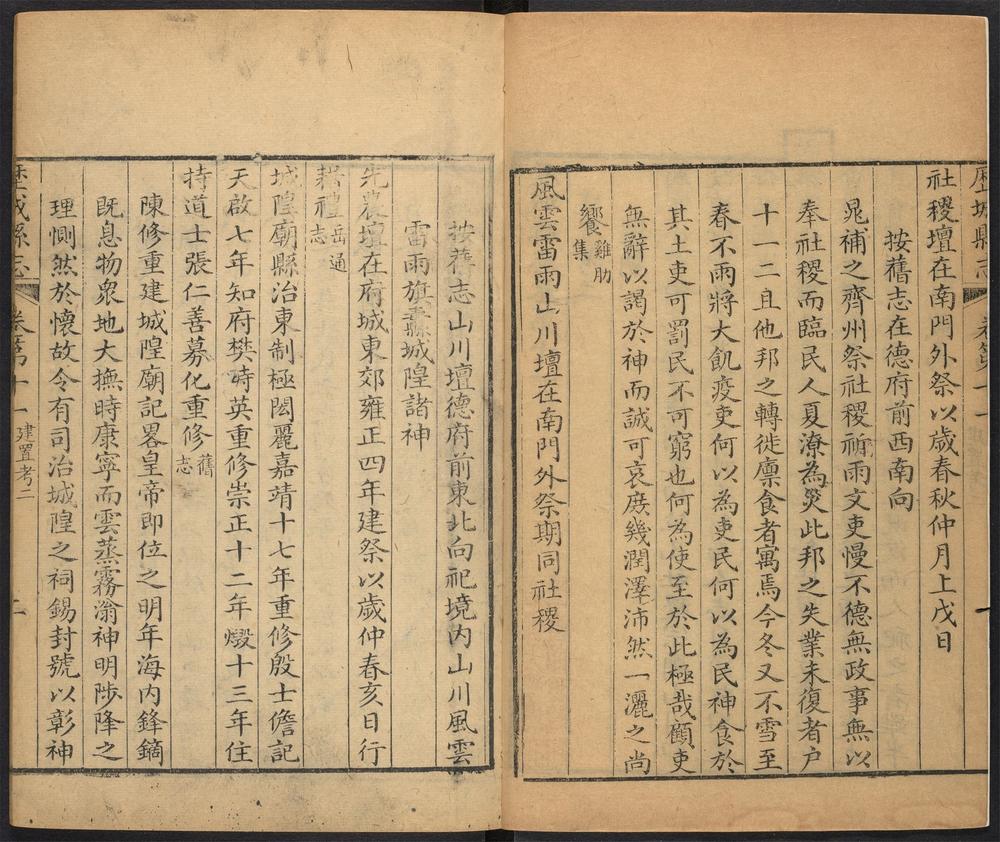 歷城縣志
卷第十一
社稷壇在南門外祭以歲春秋仲月上戊日
按舊志在德府前西南向
晁補之齊州祭社稷祈雨文吏慢不德無政事無以
奉社稷而臨民人夏潦為災此邦之失業未復者户
十一二且他邦之轉徙廪食者寓焉今冬又不雪至
春不雨將大飢疫吏何以為吏民何以為民神食於
其土吏可罰民不可窮也何為使至於此極哉顧吏
無辭以謁於神而誠可哀庶幾潤澤沛然一灑之尚
饗雞肋
集
風雲雷雨山川壇在南門外祭期同社稷
按舊志山川壇德府前東北向祀境内山川風雲
雷雨旗纛城隍諸神
先農壇在府城東郊雍正四年建祭以歲仲春亥日行
耕禮岳通
志
城隍廟縣治東制極閎麗嘉靖十七年重修殷士儋記
天啟七年知府樊時英重修崇正十二年燬十三年住
持道士張仁善募化重修舊
志
陳修重建城隍廟記畧皇帝即位之明年海内鋒鏑
既息物衆地大撫時康寧而雲蒸霧滃神明陟降之
理惻然於懷故令有司治城隍之祠錫封號以彰神
歷城縣志
卷第十一建置考二
二